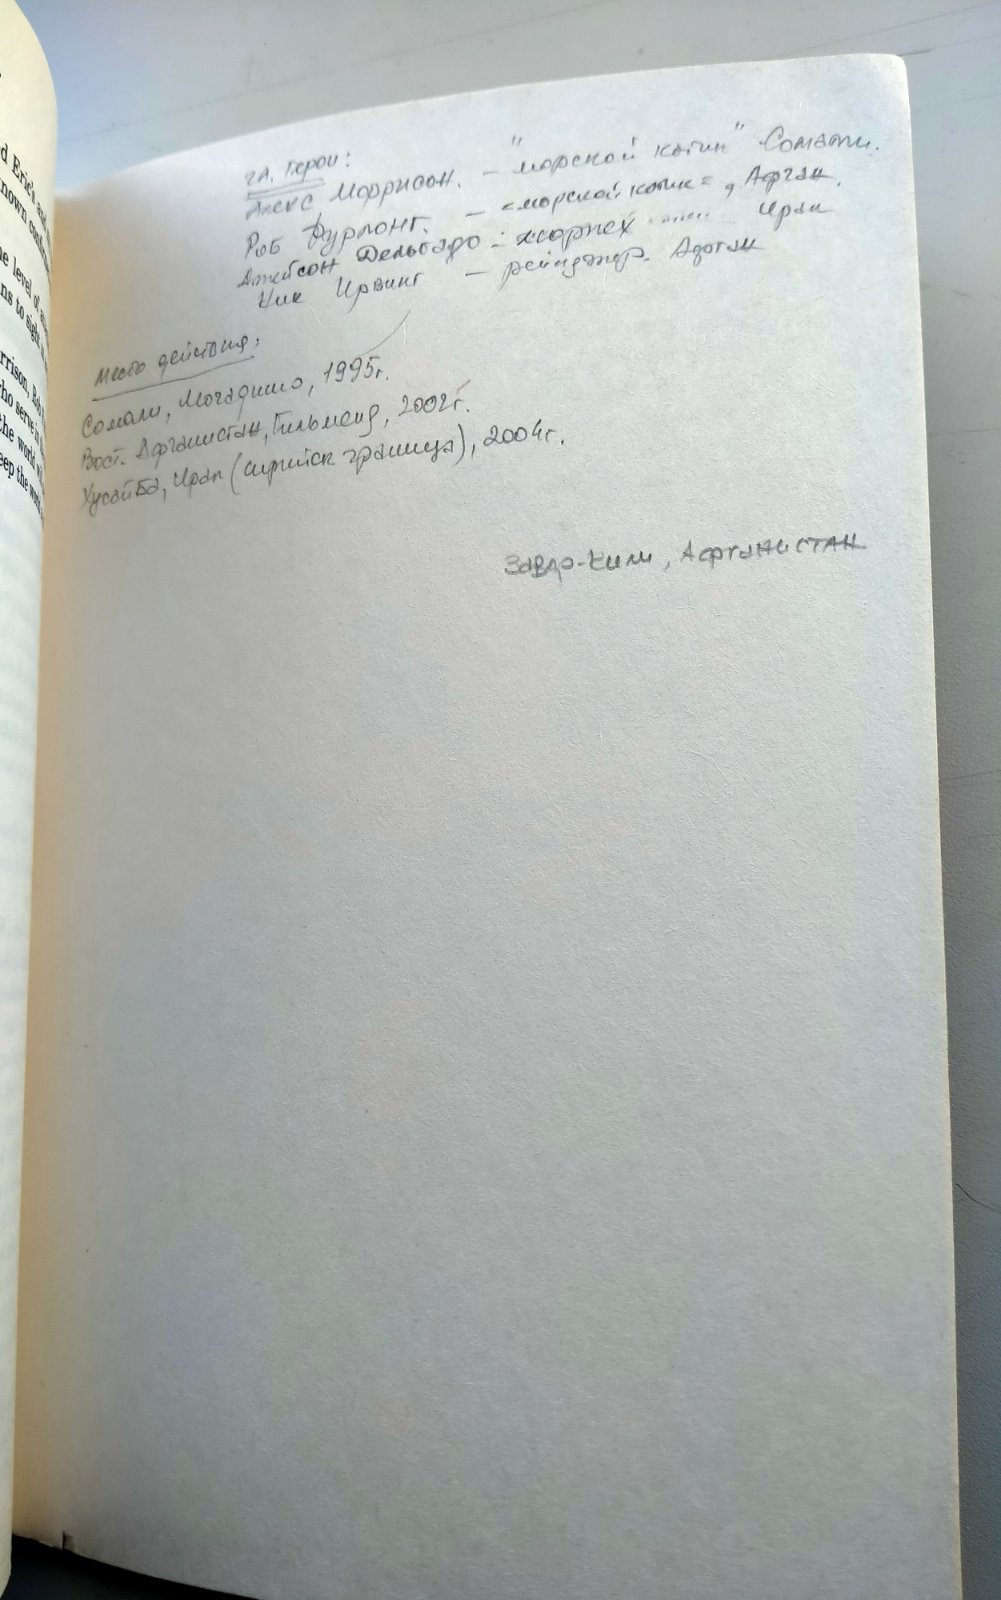 d Eric's and
nown
e level of
ns to sight
rrison, Rob
ho serve in
the world
eep the
гл. герои:
Алекс Моррисон. – "морской котик" Сомали.
Роб Фурлонг. – "морской котик", Афган.
Джейсон Дельгадо – морпех Ирак
Ник Ирвинг – рейнджер. Афган
Место действия:
Сомали, Могадишо, 1995г.
Вост. Афганистан, Гильменд, 2002г.
Хусайба, Ирак (сирийск граница), 2004г.
Завдо-Кили, Афганистан